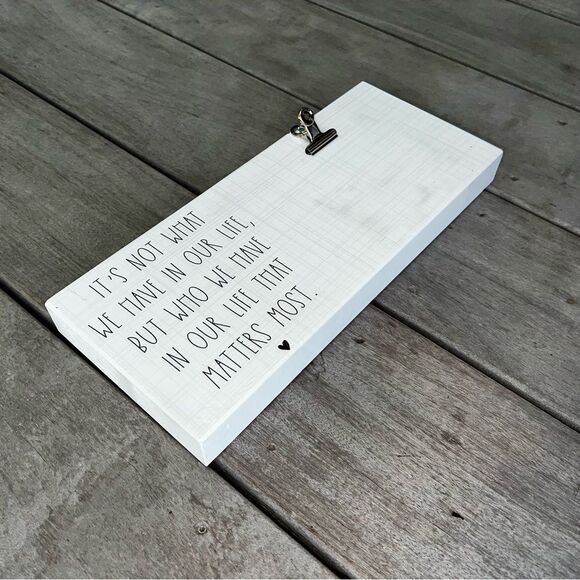 IT'S NOT WHAT
WE HAVE IN OUR LIFE,
BUT WHO WE HAVE
IN OUR LIFE THAT
MATTERS MOST.